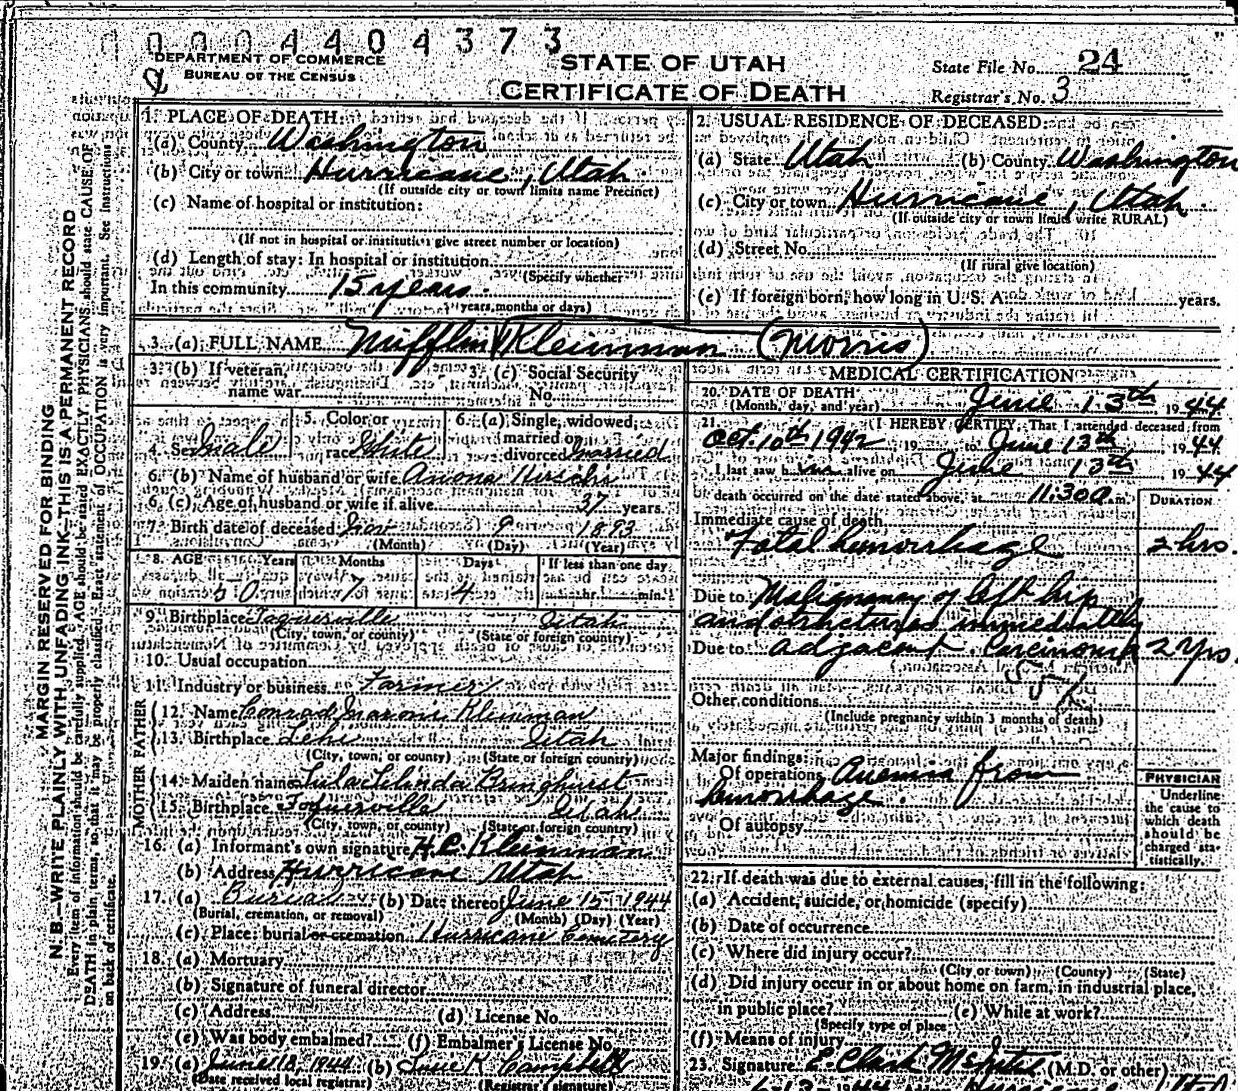 0 0 0 4 4 0 4 3 7 3
DEPARTMENT OF COMMERCE
BUREAU OF THE CENSUS
STATE OF UTAH
CERTIFICATE OF DEATH
State File No. 24
Registrar's No. 3
MARGIN RESERVED FOR BINDING
N. B.—WRITE PLAINLY WITH UNFADING INK—THIS IS A PERMANENT RECORD
Every item of information should be carefully supplied. AGE should be stated EXACTLY. PHYSICIANS should state CAUSE OF
DEATH in plain terms, so that it may be properly classified. Exact statement of OCCUPATION is very important. See instructions
on back of certificate.
1. PLACE OF DEATH:
(a) County Washington
(b) City or town Hurricane, Utah
(If outside city or town limits name Precinct)
(c) Name of hospital or institution:
(If not in hospital or institution give street number or location)
(d) Length of stay: In hospital or institution
(Specify whether
In this community 15 years.
years, months or days)
2. USUAL RESIDENCE OF DECEASED:
(a) State Utah (b) County Washington
(c) City or town Hurricane, Utah.
(If outside city or town limits write RURAL)
(d) Street No.
(If rural give location)
(e) If foreign born, how long in U. S. A. years.
3. (a) FULL NAME Mifflin Kleinman (Morris)
3. (b) If veteran, name war
3. (c) Social Security No.
4. Sex Male
5. Color or race White
6. (a) Single, widowed, married or divorced Married
6. (b) Name of husband or wife Anona Hirschi
6. (c) Age of husband or wife if alive 37 years.
7. Birth date of deceased Nov 9 1893
(Month) (Day) (Year)
8. AGE Years Months Days If less than one day
50 7 4 hr. min.
9. Birthplace Toquerville Utah
(City, town, or county) (State or foreign country)
10. Usual occupation
11. Industry or business Farmer
FATHER
12. Name Conrad Kleinman
13. Birthplace Lehi Utah
(City, town, or county) (State or foreign country)
MOTHER
14. Maiden name Lula Bringhurst
15. Birthplace Toquerville Utah
(City, town, or county) (State or foreign country)
16. (a) Informant's own signature H.C. Kleinman
(b) Address Hurricane Utah
17. (a) Burial (b) Date thereof June 15 1944
(Burial, cremation, or removal) (Month) (Day) (Year)
(c) Place: burial or cremation Hurricane Cemetery
18. (a) Mortuary
(b) Signature of funeral director
(c) Address (d) License No.
(e) Was body embalmed? (f) Embalmer's License No.
19. (a) June 18, 1944 (b) Susie K Campbell
(Date received local registrar) (Registrar's signature)
MEDICAL CERTIFICATION
20. DATE OF DEATH
(Month, day, and year) June 13th 1944
21. (I HEREBY CERTIFY, That I attended deceased from
Oct. 10th 1942 19 to June 13th, 1944
I last saw him alive on June 13th 1944
death occurred on the date stated above, at 11:30 a.m. DURATION
Immediate cause of death
Fatal hemorrhage 2 hrs.
Due to Malignancy of left hip
and structures immediately
Due to adjacent. Carcinoma 2 yrs.
Other conditions
(Include pregnancy within 3 months of death)
Major findings:
Of operations Anemia from
hemorrhage.
Of autopsy
PHYSICIAN
Underline
the cause to
which death
should be
charged sta-
tistically.
22. If death was due to external causes, fill in the following:
(a) Accident, suicide, or homicide (specify)
(b) Date of occurrence
(c) Where did injury occur?
(City or town) (County) (State)
(d) Did injury occur in or about home on farm, in industrial place,
in public place? (e) While at work?
(Specify type of place)
(f) Means of injury
23. Signature E. Clark McIntire (M.D. or other)